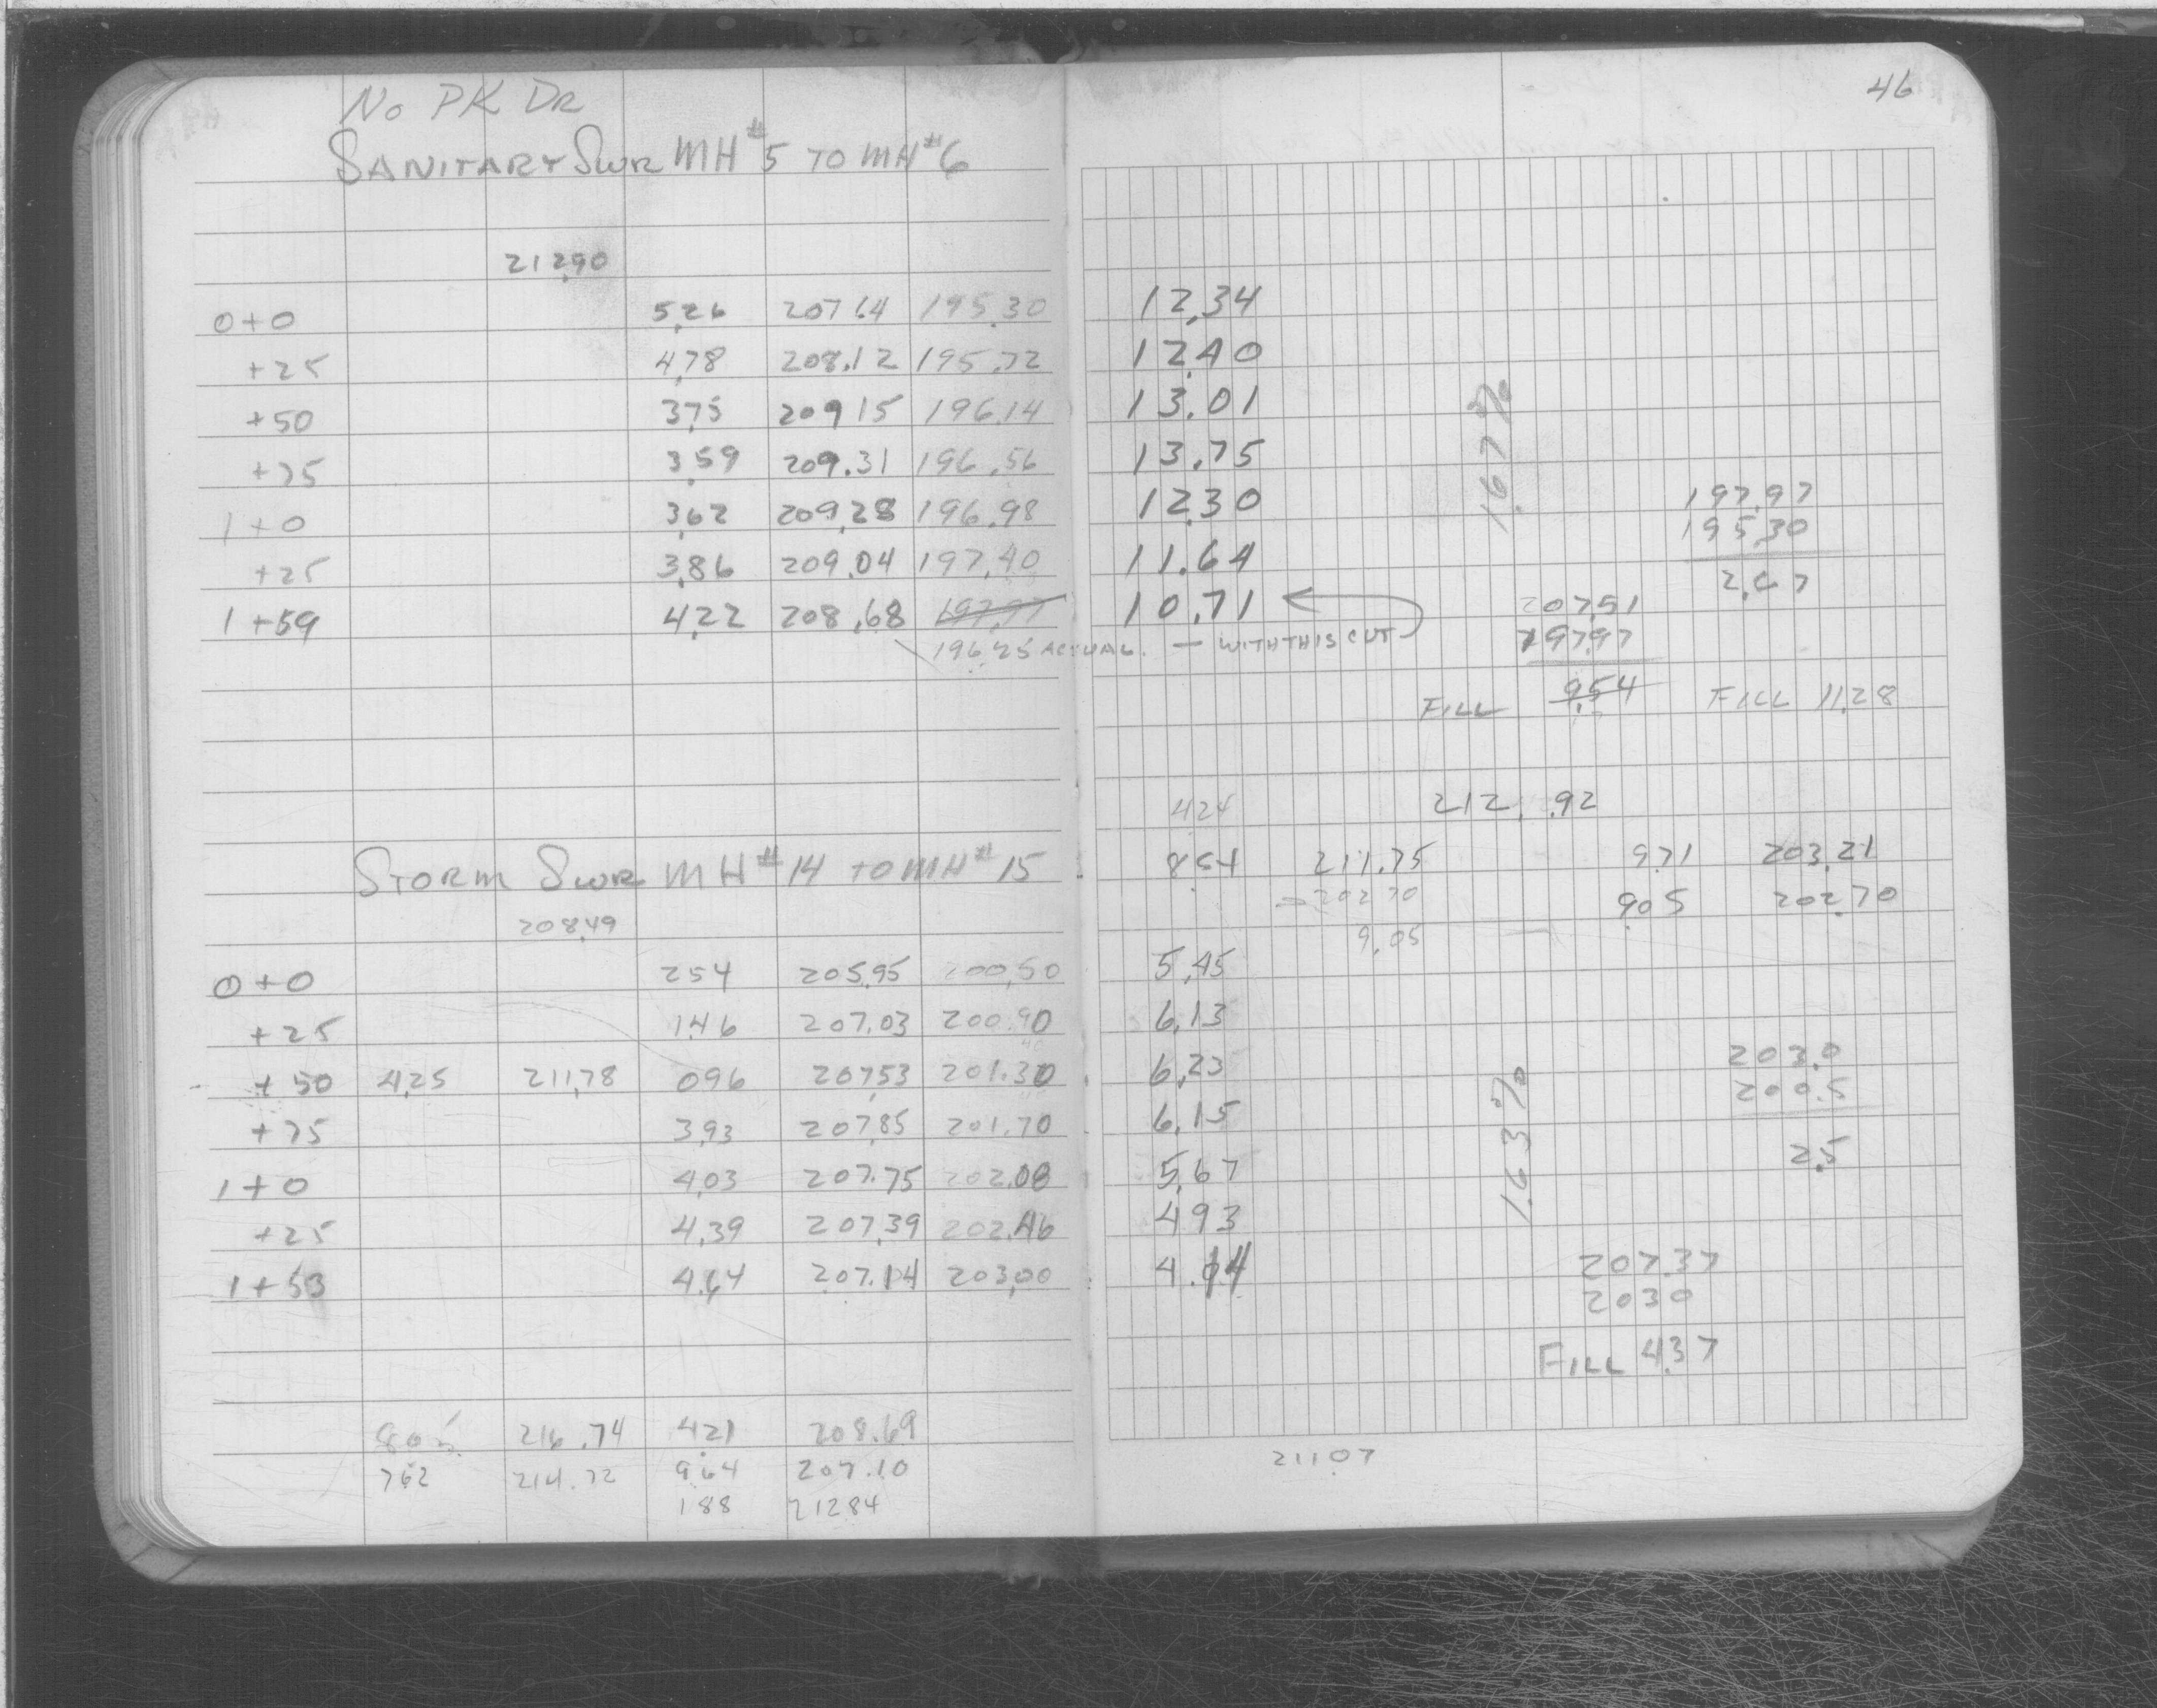 46
No PK DR
SANITARY SWR MH#5 TO MH#6
212.90
0+0 5.26 207.64 195.30 12.34
+25 4.78 208.12 195.72 12.40
+50 3.75 209.15 196.14 13.01
+75 3.59 209.31 196.56 13.75
1+0 3.62 209.28 196.98 12.30
+25 3.86 209.04 197.40 11.64
1+59 4.22 208.68 197.97 10.71
196.25 ACTUAL. — WITH THIS CUT
1.67%
197.97
195.30
2.67
207.51
197.97
FILL 9.54 FILL 11.28
424 212.92
854 211.75 971 203.21
202.70 9.05 202.70
9.05
STORM SWR MH#14 TO MH#15
208.49
0+0 2.54 205.95 200.50 5.45
+25 1.46 207.03 200.90 6.13
+50 4.25 211.78 0.96 207.53 201.30 6.23
+75 3.93 207.85 201.70 6.15
1+0 4.03 207.75 202.08 5.67
+25 4.39 207.39 202.46 4.93
1+53 4.64 207.14 203.00 4.14
1.63%
203.0
200.5
2.5
207.37
2030
FILL 4.37
805 216.74 421 208.69
762 214.72 964 207.10
188 212.84
211.07